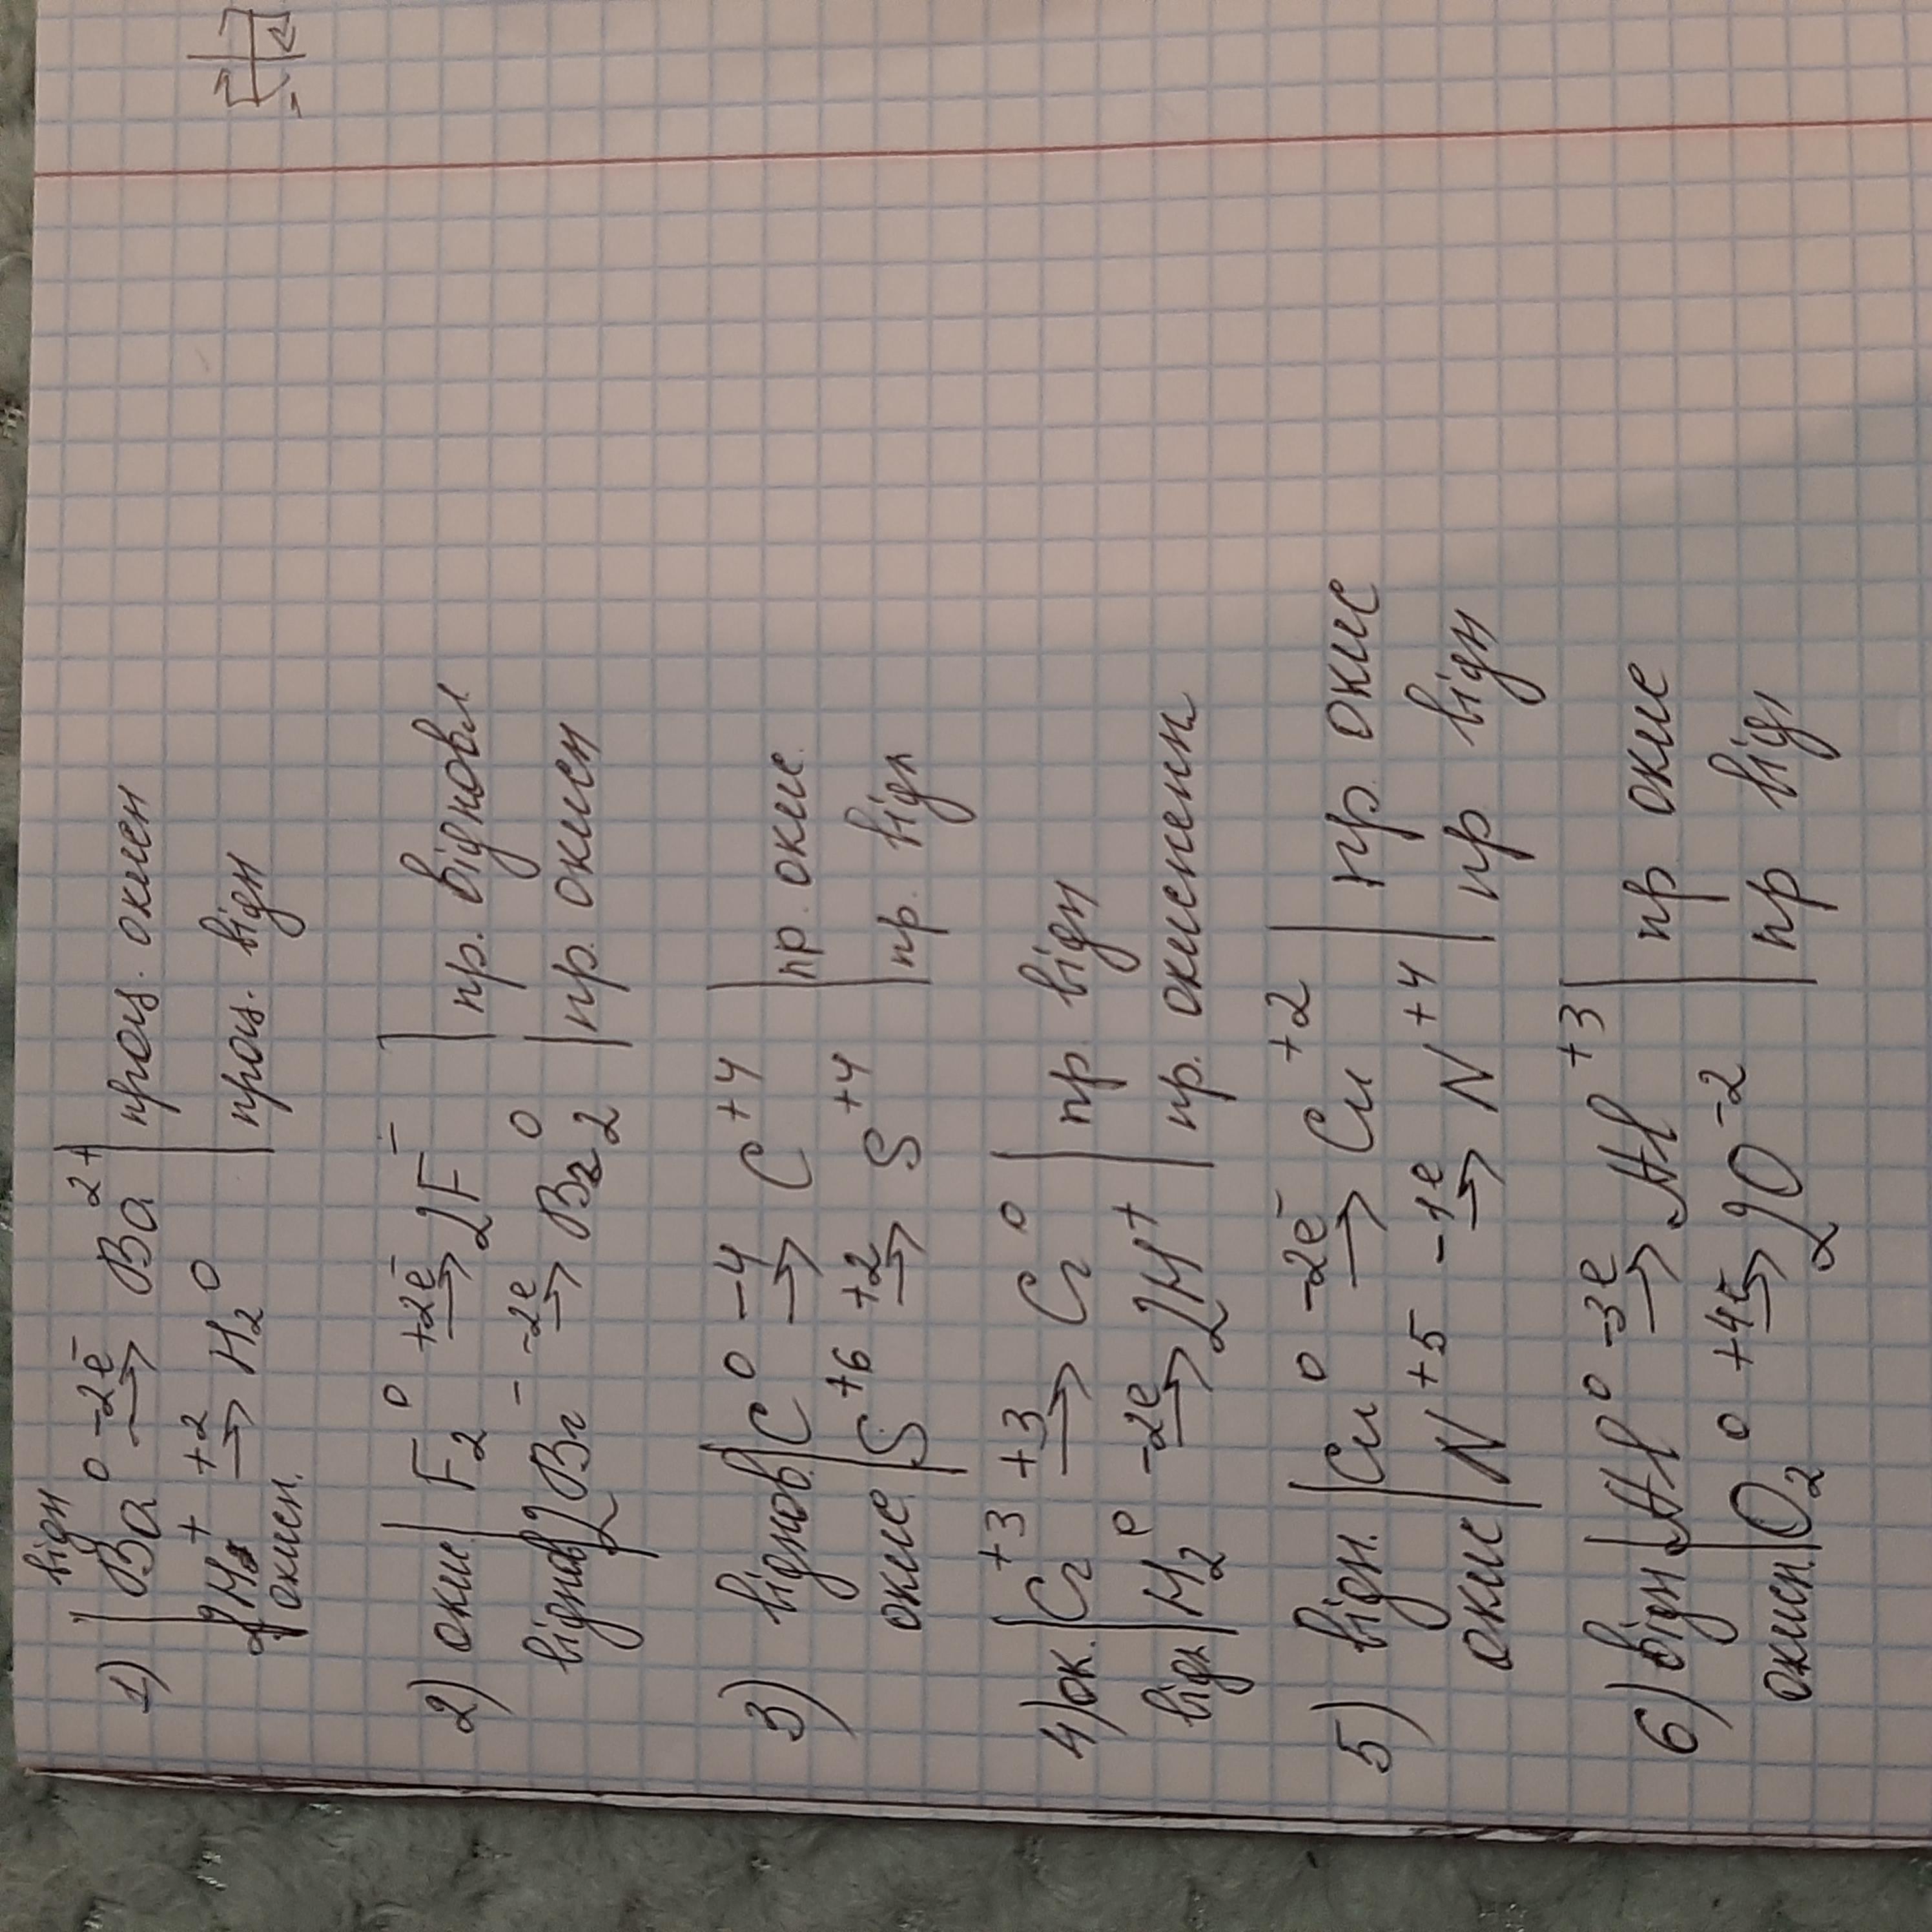 відн
1) Ba⁰ -2e̅ → Ba²⁺ | проц. окисн
2H⁺ +2 → H₂⁰ | проц. відн
окисн.
2) окис | F₂⁰ +2e̅ → 2F⁻ | пр. відновл
віднов | 2Br⁻ -2e → Br₂⁰ | пр. окисн
3) віднов. | C⁰ -4 → C⁺⁴ | пр. окис.
окис. | S⁺⁶ +2 → S⁺⁴ | пр. відн
4) ок. | Cr⁺³ +3 → Cr⁰ | пр. відн
відн | H₂⁰ -2e → 2H⁺ | пр. окисненн
5) відн. | Cu⁰ -2e̅ → Cu⁺² | пр. окис
окис | N⁺⁵ -1e → N⁺⁴ | пр відн
6) відн | Al⁰ -3e → Al⁺³ | пр окис
окисн. | O₂⁰ +4e → 2O⁻² | пр від